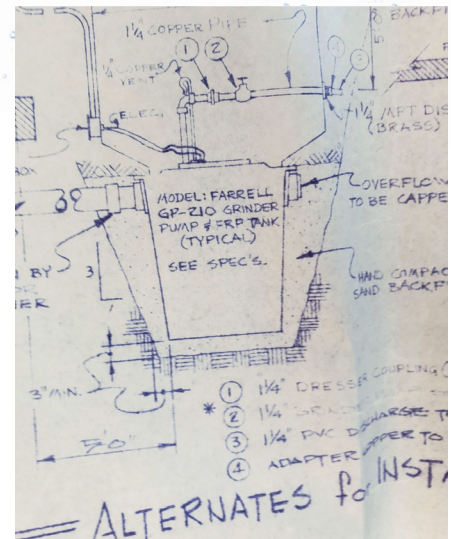 1¼" COPPER PIPE
BACKFI
1 2
¼" COPPER
VENT
4 3
ELEC.
1¼" MPT DIS
(BRASS)
MODEL: FARRELL
GP-210 GRINDER
PUMP & FRP TANK
(TYPICAL)
SEE SPEC'S.
OVERFLOW
TO BE CAPPE
N BY
3
1
HAND COMPAC
SAND BACKFI
3" MIN.
5'0"
1 1¼" DRESSER COUPLING (
* 2 1¼"
3 1¼" PVC DISCHARGE T
4 ADAPTER COPPER TO
ALTERNATES for INSTA